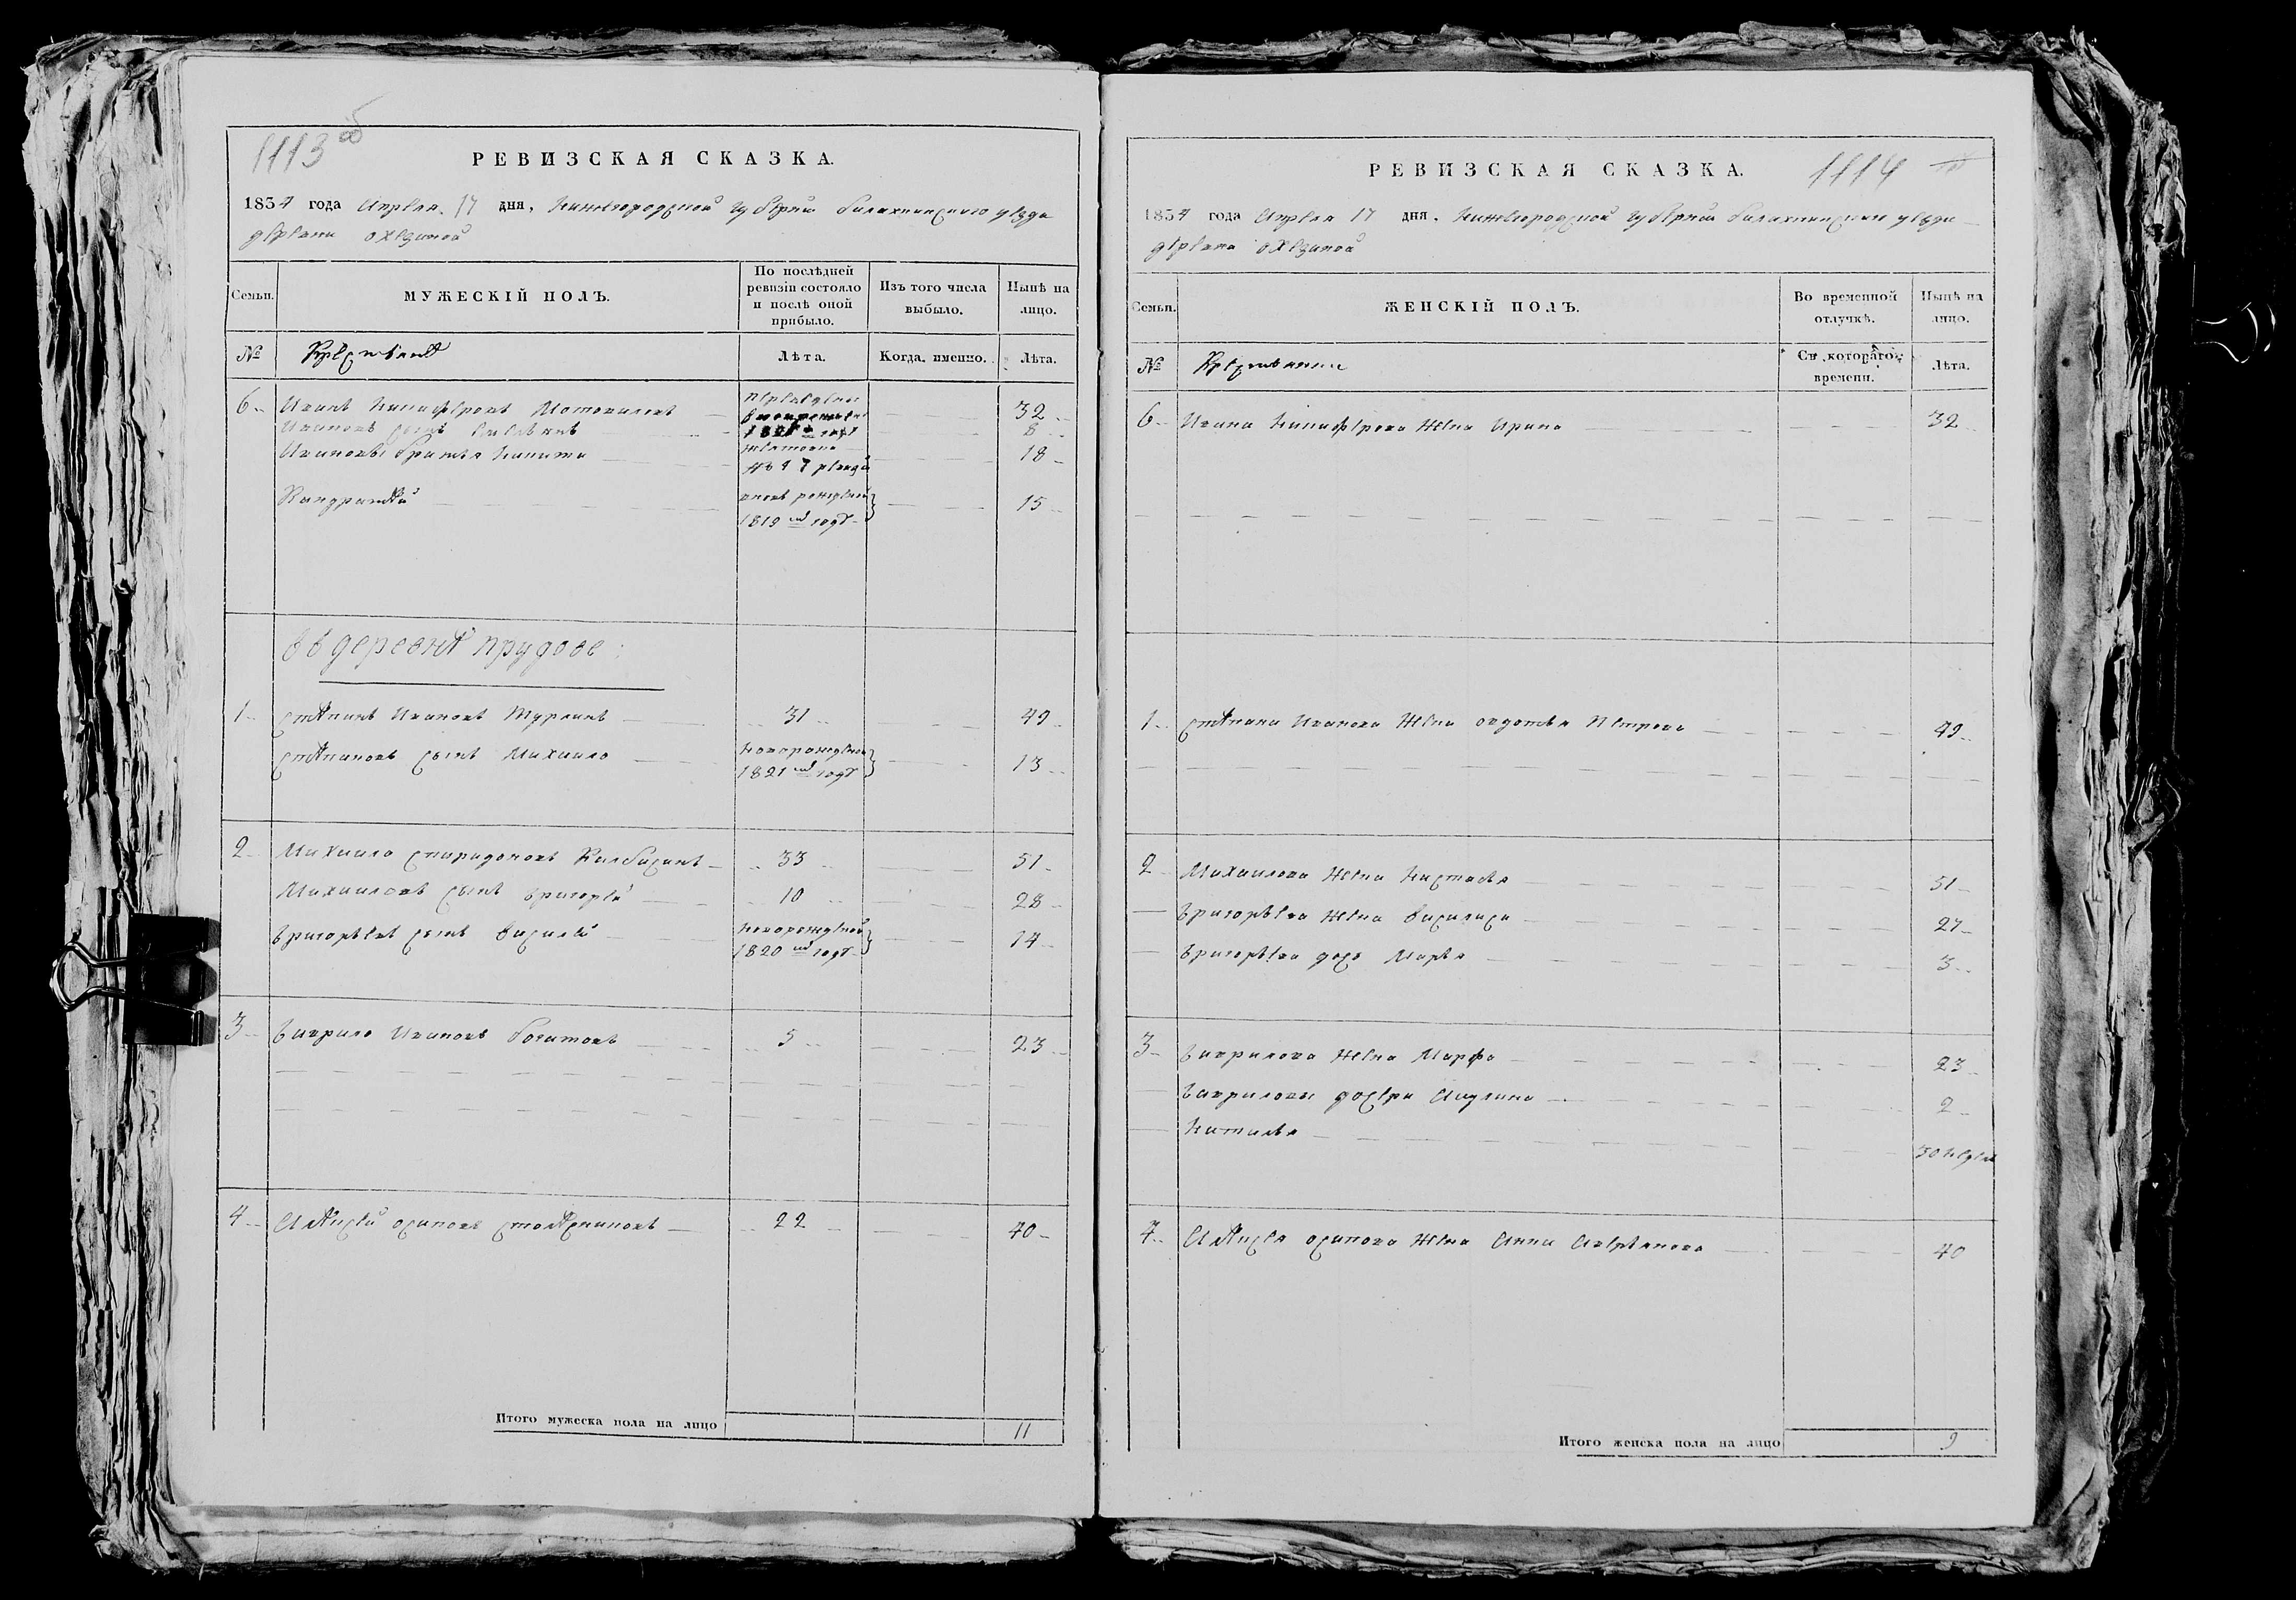 1113 об
РЕВИЗСКАЯ СКАЗКА.
1834 года Апреля 17 дня, Нижегородской губерніи балахнинскаго уезда
деревни
Семьи.
МУЖЕСКІЙ ПОЛЪ.
По послѣдней ревизіи состояло и послѣ оной прибыло.
Изъ того числа выбыло.
Нынѣ на лицо.
№
Крестьяне
Лѣта.
Когда именно.
Лѣта.
6 Иванъ Никифировъ 32
Ивановъ сынъ 8
Ивановы братья Никита 18
Кандратей 15
1819 годе
въ деревнѣ прудове
1 Степанъ Ивановъ 31 49
Степановъ сынъ Михаило новорожденой 1821 годе 13
2 Михаило Спиридоновъ 33 51
Михаиловъ сынъ Григорей 10 28
Григорьевъ сынъ Василей новорожденой 1820 годе 14
3 Гаврило Ивановъ Богатовъ 5 23
4 Алексей осиповъ 22 40
Итого мужеска пола на лицо 11
1114
РЕВИЗСКАЯ СКАЗКА.
1834 года Апреля 17 дня, Нижегородской губерніи балахнинскаго уезда
деревни
Семьи.
ЖЕНСКІЙ ПОЛЪ.
Во временной отлучкѣ.
Нынѣ на лицо.
№
Крестьянки
Съ котораго времени.
Лѣта.
6 Ивана Никифирова жена Ирина 32
1 Степана Иванова жена овдотья Петрова 49
2 Михаилова жена Настасья 51
Григорьева жена Василиса 27
Григорьева дочь Марья 3
3 Гаврилова жена Марфа 23
Гавриловы дочери Акулина 2
Наталья 30 недель
4 Алексея осипова жена Анна 40
Итого женска пола на лицо 9